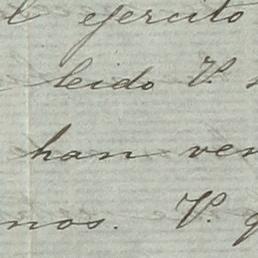 el ejercito
leido V.
han ven
nos. V. q